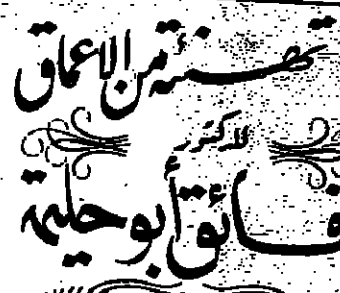 تهنئة من الاعماق
للدكتور
فائق أبو حليمة